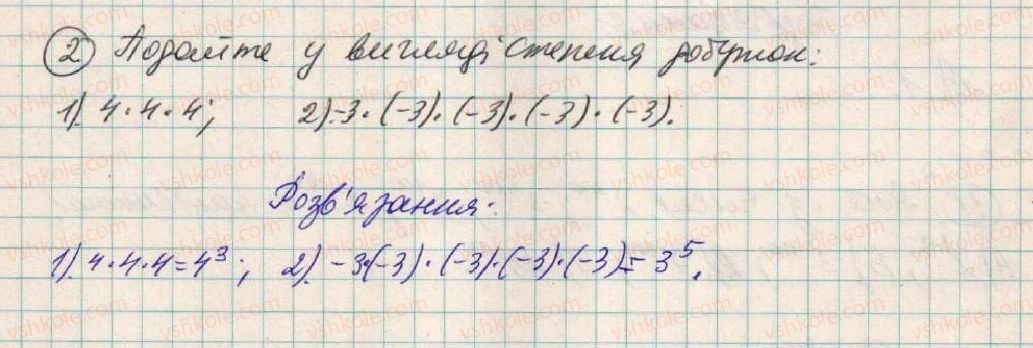 2 Подайте у вигляді степеня добуток:
1). 4 · 4 · 4; 2). -3 · (-3) · (-3) · (-3) · (-3).
Розв'язання:
1). 4 · 4 · 4 = 4³; 2). -3 · (-3) · (-3) · (-3) · (-3) = 3⁵.